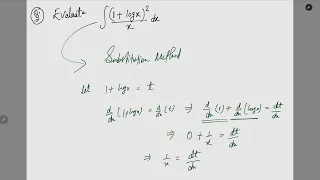 Q: Evaluate ∫ (1 + log x)² / x dx
Substitution Method
let 1 + log x = t
d/dx (1 + log x) = d/dx (t) ⇒ d/dx (1) + d/dx (log x) = dt/dx
⇒ 0 + 1/x = dt/dx
⇒ 1/x = dt/dx